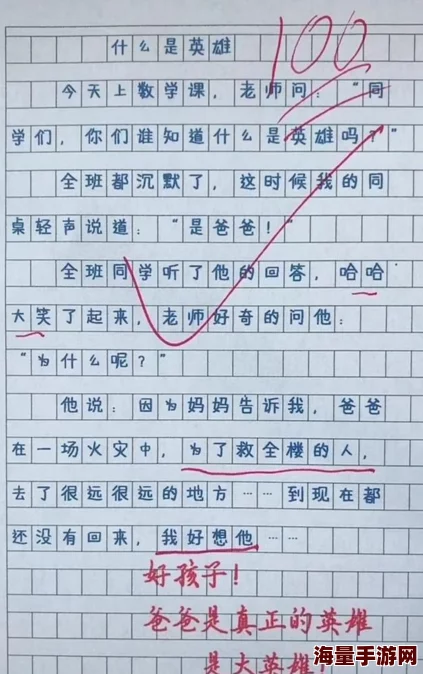 什么是英雄
100
今天上数学课，老师问：“同
学们，你们谁知道什么是英雄吗？”
全班都沉默了，这时候我的同
桌轻声说道：“是爸爸！”
全班同学听了他的回答，哈哈
大笑了起来，老师好奇的问他：
“为什么呢？”
他说：因为妈妈告诉我，爸爸
在一场火灾中，为了救全楼的人，
去了很远很远的地方……到现在都
还没有回来，我好想他……
好孩子！
爸爸是真正的英雄
是大英雄！
海量手游网